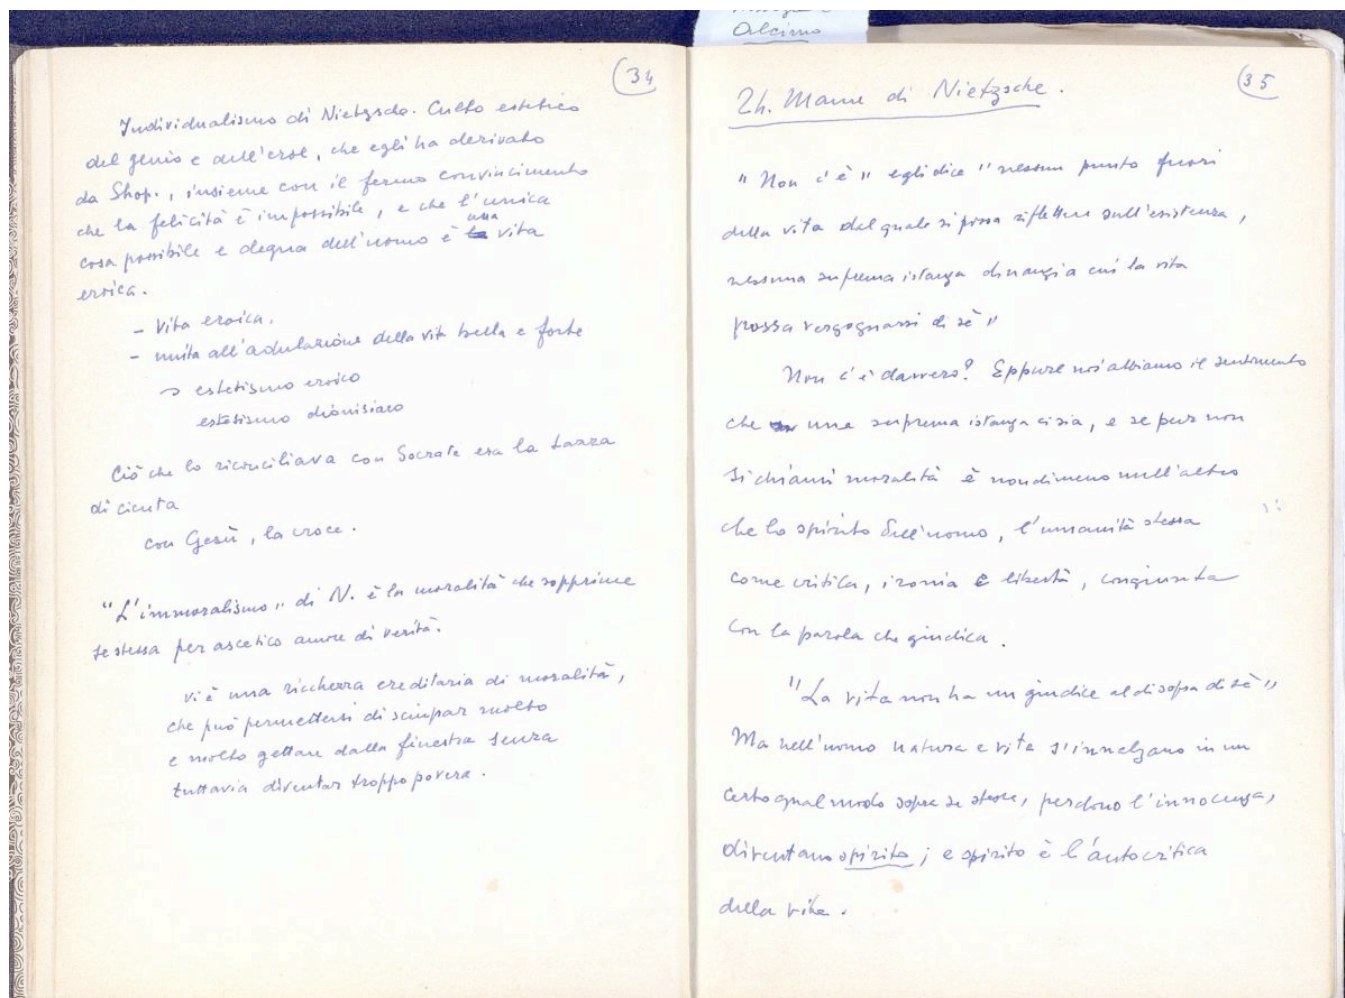 Alcimo
34
Individualismo di Nietzsche. Culto estetico
del genio e dell'eroe, che egli ha derivato
da Shop., insieme con il fermo convincimento
che la felicità è impossibile, e che l'unica
una
cosa possibile e degna dell'uomo è la vita
eroica.
- Vita eroica.
- unita all'adulazione della vita bella e forte
→ estetismo eroico
estetismo dionisiaco
Ciò che lo riconciliava con Socrate era la tazza
di cicuta
con Gesù, la croce.
"L'immoralismo" di N. è la moralità che sopprime
se stessa per ascetico amore di verità.
vi è una ricchezza ereditaria di moralità,
che può permettersi di sciupar molto
e molto gettare dalla finestra senza
tuttavia diventar troppo povera.
35
Th. Mann di Nietzsche.
"Non c'è" egli dice "nessun punto fuori
della vita dal quale si possa riflettere sull'esistenza,
nessuna suprema istanza dinanzi a cui la vita
possa vergognarsi di sè"
Non c'è davvero? Eppure noi abbiamo il sentimento
che una suprema istanza ci sia, e se pur non
si chiami moralità è nondimeno null'altro
che lo spirito dell'uomo, l'umanità stessa
come critica, ironia e libertà, congiunta
con la parola che giudica.
"La vita non ha un giudice al di sopra di sè"
Ma nell'uomo natura e vita s'innalzano in un
certo qual modo sopra se stesse, perdono l'innocenza,
diventano spirito; e spirito è l'autocritica
della vita.